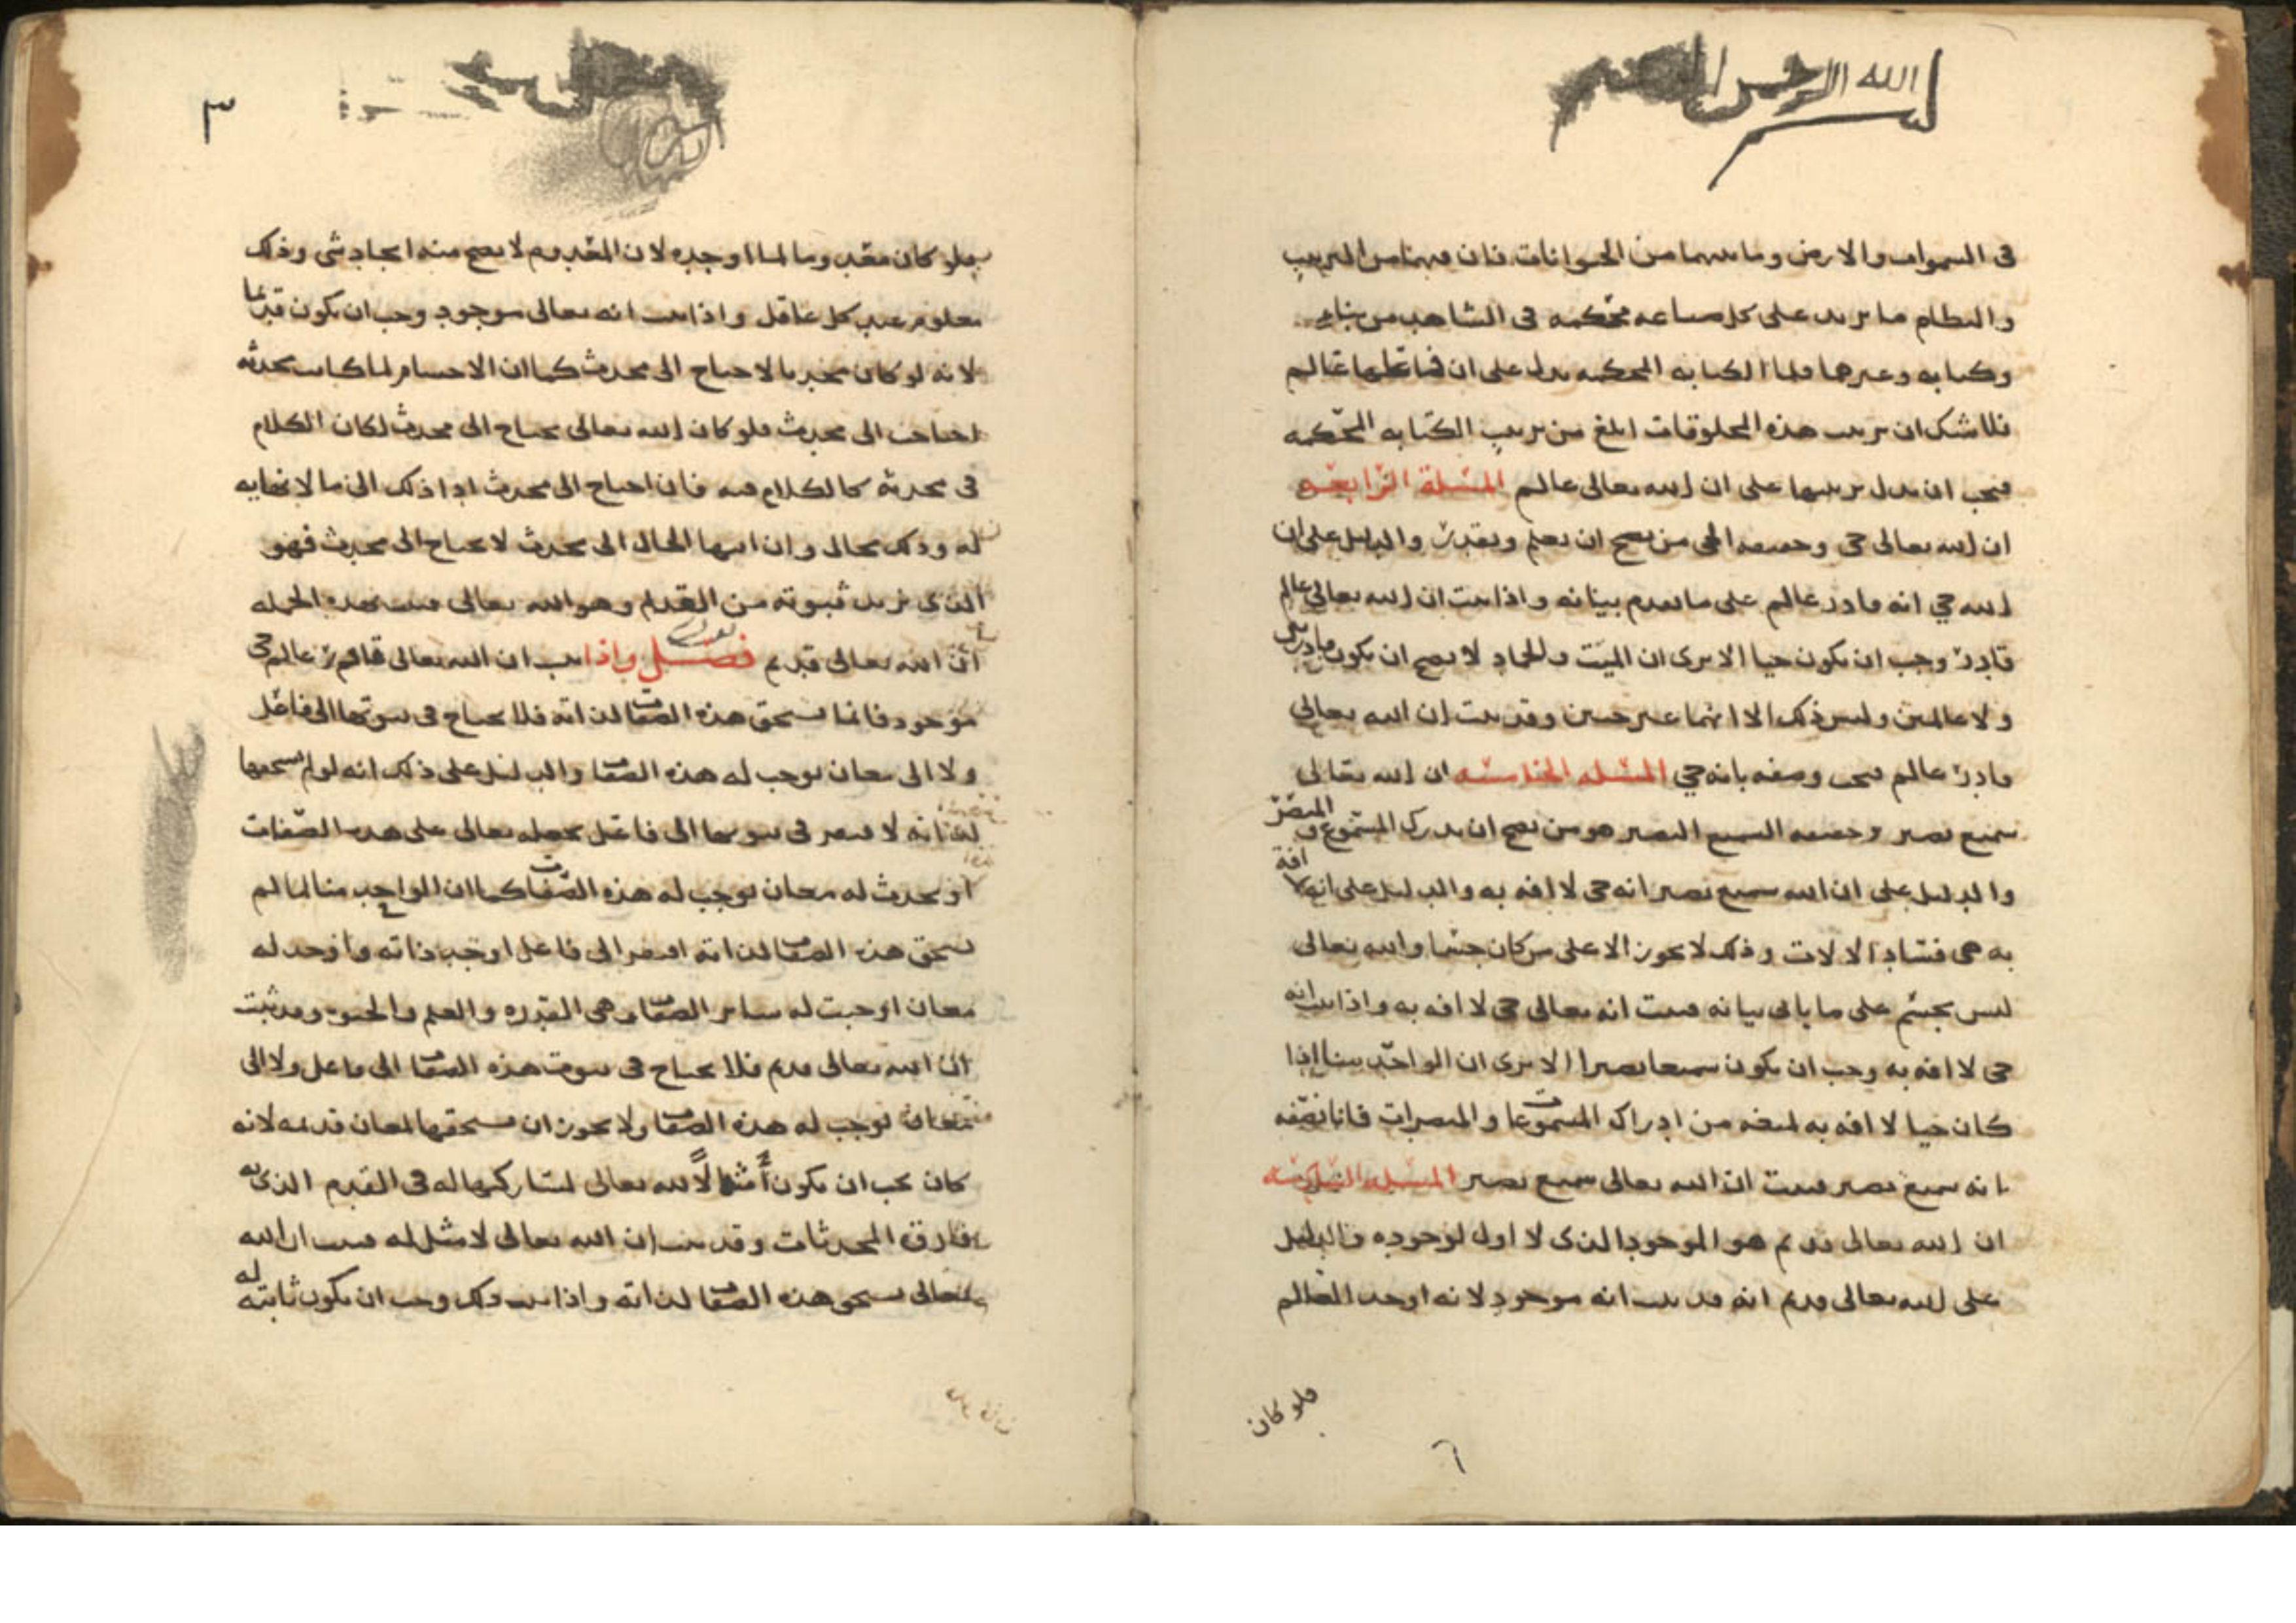 بسم الله الرحمن الرحيم
في السموات والارض وما بينهما من الحيوانات فان فيهما من الترتيب
والنظام ما يزيد على كل صناعه محكمه في الشاهد من بناء
وكتابه وغيرها فلما الكتابه المحكمه تدل على ان فاعلها عالم
فلا شك ان ترتيب هذه المخلوقات ابلغ من ترتيب الكتابه المحكمه
فيجب ان يدل ترتيبها على ان الله تعالى عالم المسئلة الرابعه
ان الله تعالى حي وحقيقه الحي من يصح ان يعلم ويقدر والدليل على ان
الله حي انه قادر عالم على ما تقدم بيانه واذا ثبت ان الله تعالى عالم
قادر وجب ان يكون حيا الا ترى ان الميت والجماد لا يصح ان يكون قادرين
ولا عالمين وليس ذلك الا انهما غير حيين وقد ثبت ان الله تعالى
قادر عالم فيجب وصفه بانه حي المسئله الخامسه ان الله تعالى
سميع بصير وحقيقه السميع البصير هو من يصح ان يدرك المسموع والمبصر
والدليل على ان الله سميع بصير انه حي لا افه به والدليل على انه لا افة
به هي فساد الالات وذلك لا يجوز الا على من كان جسما والله تعالى
ليس بجسم على ما ياتي بيانه فثبت انه تعالى حي لا افه به واذا ثبت انه
حي لا افه به وجب ان يكون سميعا بصيرا الا ترى ان الواحد منا اذا
كان حيا لا افه به لمنعه من ادراك المسموعات والمبصرات فانا نصفه
بانه سميع بصير فثبت ان الله تعالى سميع بصير المسئله السادسه
ان الله تعالى قديم هو الموجود الذي لا اول لوجوده والدليل
على الله تعالى قديم انه قد ثبت انه موجود لانه اوجد العالم
فلو كان
٢
٣
فلو كان معدوما لما اوجده لان المعدوم لا يصح منه ايجاد شي وذلك
معلوم عند كل عاقل واذا ثبت انه تعالى موجود وجب ان يكون قديما
لانه لو كان محدثا لاحتاج الى محدث كما ان الاجسام لما كانت محدثه
احتاجت الى محدث فلو كان الله تعالى يحتاج الى محدث لكان الكلام
في محدثه كالكلام فيه فان احتاج الى محدث ادا ذلك الى ما لا نهايه
له وذلك محال وان انتها الحال الى محدث لا يحتاج الى محدث فهو
الذي نريد ثبوته من القدم وهو الله تعالى فثبت بهذه الجمله
ان الله تعالى قديم فصل واذا ثبت ان الله تعالى قادر عالم حي
موجود فانما يستحق هذه الصفات لذاته فلا يحتاج في ثبوتها الى فاعل
ولا الى معان توجب له هذه الصفات والدليل على ذلك انه لو لم يستحقها
لذاته لافتقر في ثبوتها الى فاعل يجعله تعالى على هذه الصفات
او يحدث له معان توجب له هذه الصفات كما ان الواحد منا لما لم
يستحق هذه الصفات لذاته افتقر الى فاعل اوجد ذاته واوجد له
معان اوجبت له ساير الصفات وهي القدره والعلم والحيوه وقد ثبت
ان الله تعالى قديم فلا يحتاج في ثبوت هذه الصفات الى فاعل ولا الى
معان توجب له هذه الصفات ولا يجوز ان يستحقها لمعان قديمه لانه
كان يجب ان يكون أمثالاً لله تعالى لمشاركتها له في القدم الذي به
فارق المحدثات وقد ثبت ان الله تعالى لا مثل له فثبت ان الله
تعالى يستحق هذه الصفات لذاته واذا ثبت ذلك وجب ان يكون ثابته له